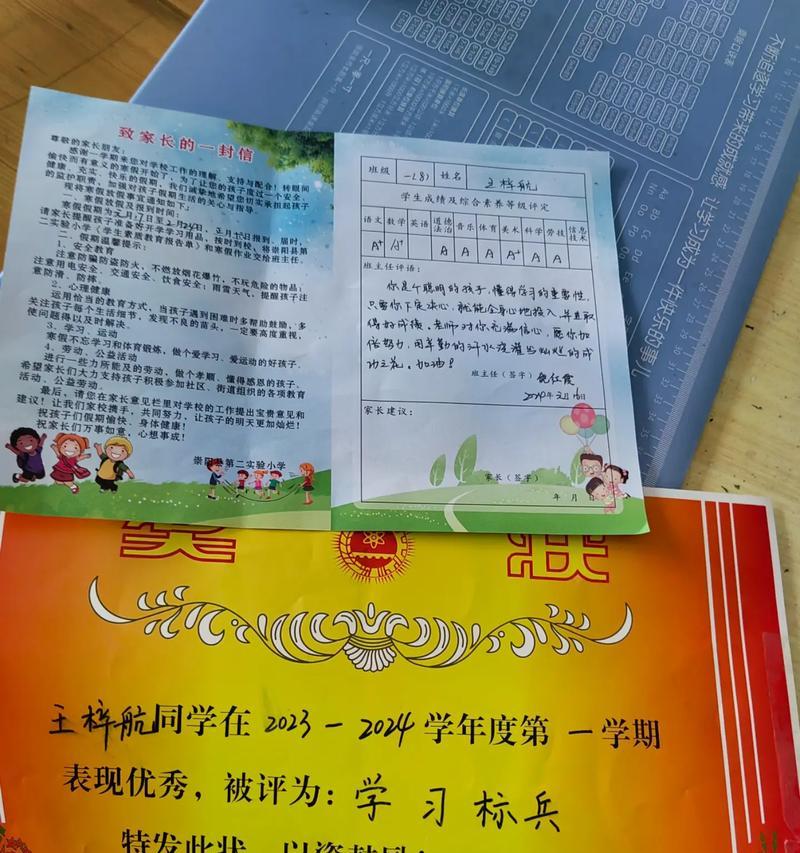 致家长的一封信
尊敬的家长朋友:
感谢一学期来您对学校工作的理解、支持与配合!转眼间
愉快而有意义的寒假开始了,为了让您的孩子度过一个安全、
健康、充实、快乐的假期,我们诚挚地希望您切实承担起孩子
的监护职责,加强对孩子假期生活的关心与指导。
现将寒假放假事宜通知如下:
一、寒假放假及报到时间:
寒假时间为2月7日至2月24日,正月十五日报到。届时,
请家长提醒孩子准备好开学学习用品,按时到校,将崇阳县第
二实验小学《学生素质教育报告单》和寒假作业交给班主任。
二、假期温馨提示:
1、安全教育
注意防骗防盗防火,不燃放烟花爆竹,不玩危险的物品;
注意用电安全、交通安全、饮食安全;雨雪天气,提醒孩子注
意防滑、防摔。
2、心理健康
运用恰当的教育方式,当孩子遇到困难时多帮助鼓励,多
关注孩子每个生活细节,发现不良的苗头,一定要高度重视,
使问题得以及时解决。
3、学习、运动
寒假不忘学习和体育锻炼,做个爱学习、爱运动的好孩子。
4、劳动、公益活动
进行一些力所能及的劳动,做个孝顺、懂得感恩的孩子。
希望家长们大力支持孩子积极参加社区、街道组织的各项教育
活动、公益劳动。
最后,请您在家长意见栏里对学校的工作提出宝贵意见和
建议!让我们家校携手,共同努力,让孩子的明天更加灿烂!
祝孩子们假期愉快、身体健康!
祝家长们万事如意,心想事成!
崇阳县第二实验小学
班级 一(8) 姓名 王梓航
学生成绩及综合素养等级评定
语文 数学 英语 道德法治 音乐 体育 美术 科学 劳技 信息技术
A+ A+ A A A A+ A A
班主任评语:
你是个聪明的孩子,懂得学习的重要性,
只要你下定决心,就能全身心地投入,并且取
得好成绩。老师对你充满信心,愿你加
倍努力,用辛勤的汗水浇灌出灿烂的成
功之花。加油!
班主任(签字)
家长建议:
家长(签字)
年 月 日
不断追逐学习带来的成就感 让学习成为一件快乐的事儿
奖 状
王梓航同学在 2023-2024 学年度第 一 学期
表现优秀,被评为:学 习 标 兵
特发此状,以资鼓励!